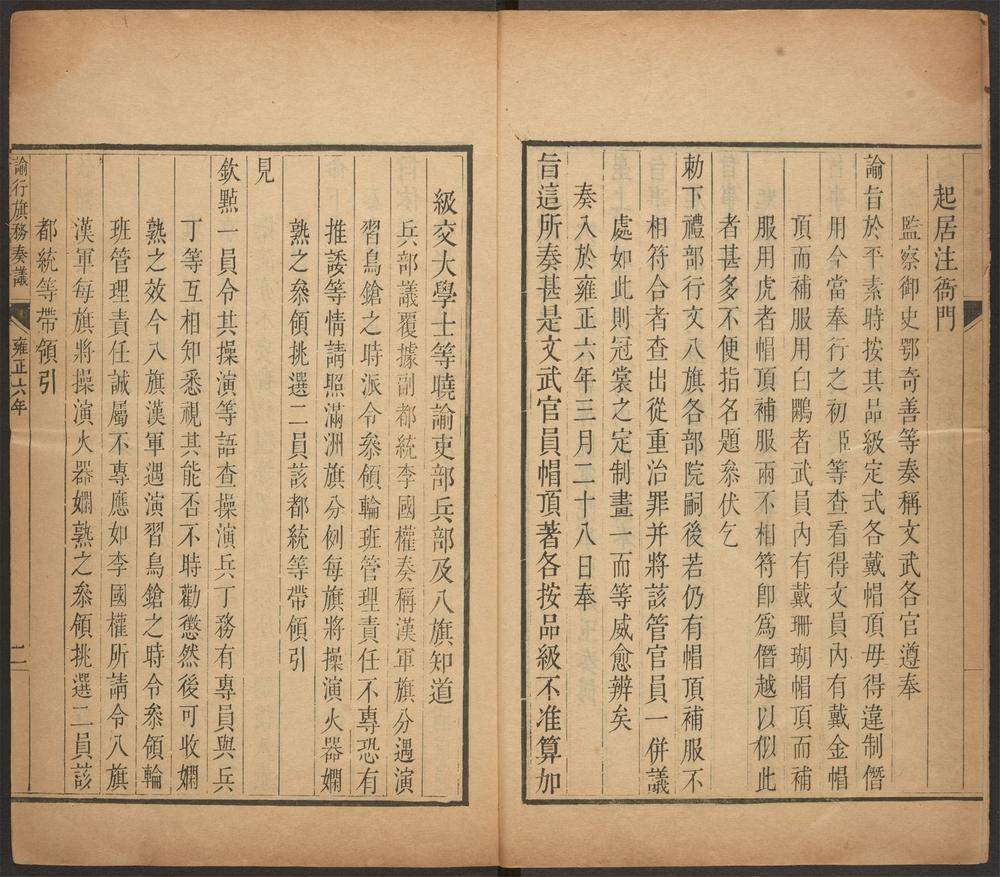 起居注衙門
監察御史鄂奇善等奏稱文武各官遵奉
諭旨於平素時按其品級定式各戴帽頂毋得違制僭
用今當奉行之初臣等查看得文員內有戴金帽
頂而補服用白鷴者武員內有戴珊瑚帽頂而補
服用虎者帽頂補服兩不相符卽爲僭越以似此
者甚多不便指名題叅伏乞
勅下禮部行文八旗各部院嗣後若仍有帽頂補服不
相符合者查出從重治罪并將該管官員一併議
處如此則冠裳之定制畫一而等威愈辨矣
奏入於雍正六年三月二十八日奉
旨這所奏甚是文武官員帽頂著各按品級不准算加
級交大學士等曉諭吏部兵部及八旗知道
兵部議覆據副都統李國權奏稱漢軍旗分遇演
習鳥鎗之時派令叅領輪班管理責任不專恐有
推諉等情請照滿洲旗分例每旗將操演火器嫺
熟之叅領挑選二員該都統等帶領引
見
欽點一員令其操演等語查操演兵丁務有專員與兵
丁等互相知悉視其能否不時勸懲然後可收嫺
熟之效今八旗漢軍遇演習鳥鎗之時令叅領輪
班管理責任誠屬不專應如李國權所請令八旗
漢軍每旗將操演火器嫺熟之叅領挑選二員該
都統等帶領引
諭行旗務奏議 雍正六年 二